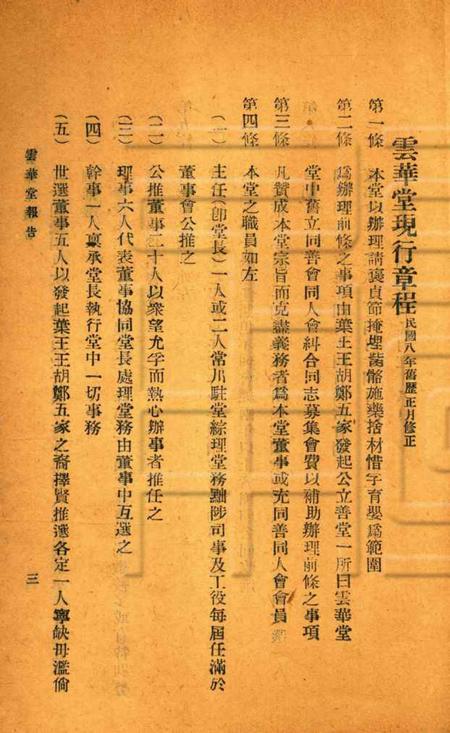 雲華堂現行章程 民國八年舊歷正月修正
第一條 本堂以辦理請褒貞節掩埋菑骼施藥捨材惜字育嬰爲範圍
第二條 爲辦理前條之事項由葉王王胡鄭五家發起公立善堂一所曰雲華堂
堂中舊立同善會同人會糾合同志募集會費以補助辦理前條之事項
第三條 凡贊成本堂宗旨而克盡義務者爲本堂董事或充同善同人會會員
第四條 本堂之職員如左
(一) 主任(卽堂長)一人或二人常川駐堂綜理堂務黜陟司事及工役每屆任滿於
董事會公推之
(二) 公推董事二十人以衆望允孚而熱心辦事者推任之
(三) 理事六人代表董事協同堂長處理堂務由董事中互選之
(四) 幹事一人稟承堂長執行堂中一切事務
(五) 世選董事五人以發起葉王王胡鄭五家之裔擇賢推選各定一人寧缺毋濫倘
雲華堂報告 三